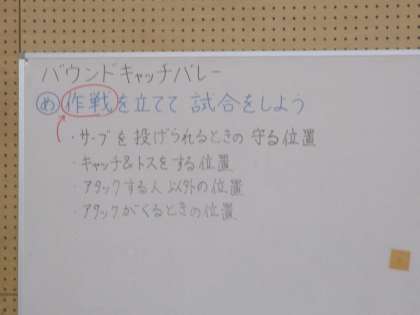 バウンドキャッチバレー
め 作戦を立てて 試合をしよう
・サーブを投げられるときの守る位置
・キャッチ&トスをする位置
・アタックする人以外の位置
・アタックがくるときの位置